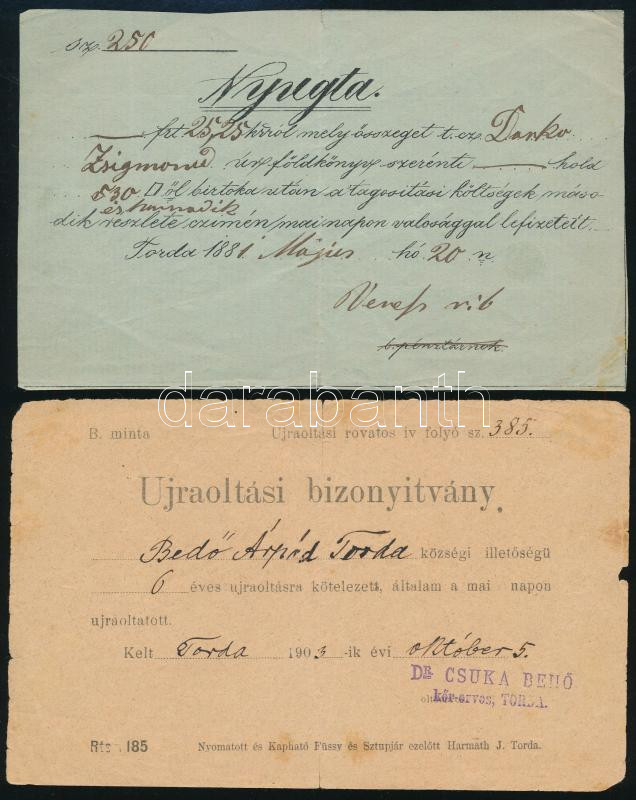 sz. 250
Nyugta.
frt 25,25 krról mely összeget t. cz. Danko
Zsigmond úr földkönyv szerenti hold
530 □öl birtoka után a tagositási költségek máso-
és harmadik
dik részlete czimén mai napon valosággal lefizetett.
Torda 1881. Május hó 20 n.
Veress
b. pénztárnok.
darabanth
B. minta Ujraoltási rovatos iv folyó sz. 385.
Ujraoltási bizonyitvány.
Bedő Árpád Torda községi illetőségü
6 éves ujraoltásra kötelezett, általam a mai napon
ujraoltatott.
Kelt Torda 1903-ik évi október 5.
DR. CSUKA BENŐ
kör-orvos, TORDA.
185 Nyomatott és Kapható Füssy és Sztupjár ezelőtt Harmath J. Torda.